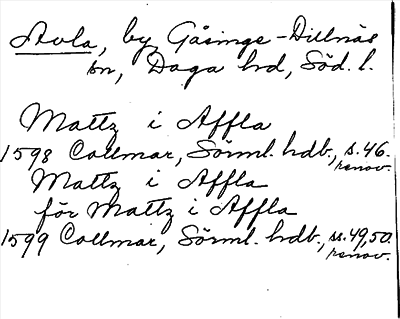 Avla, by Gåsinge-Dillnäs
sn, Daga hd, Söd. l.
Mattz i Affla
1598 Collmar, Sörml. hdb., s. 46.
renov.
Mattz i Affla
för Mattz i Affla
1599 Collmar, Sörml. hdb., ss. 49, 50.
renov.